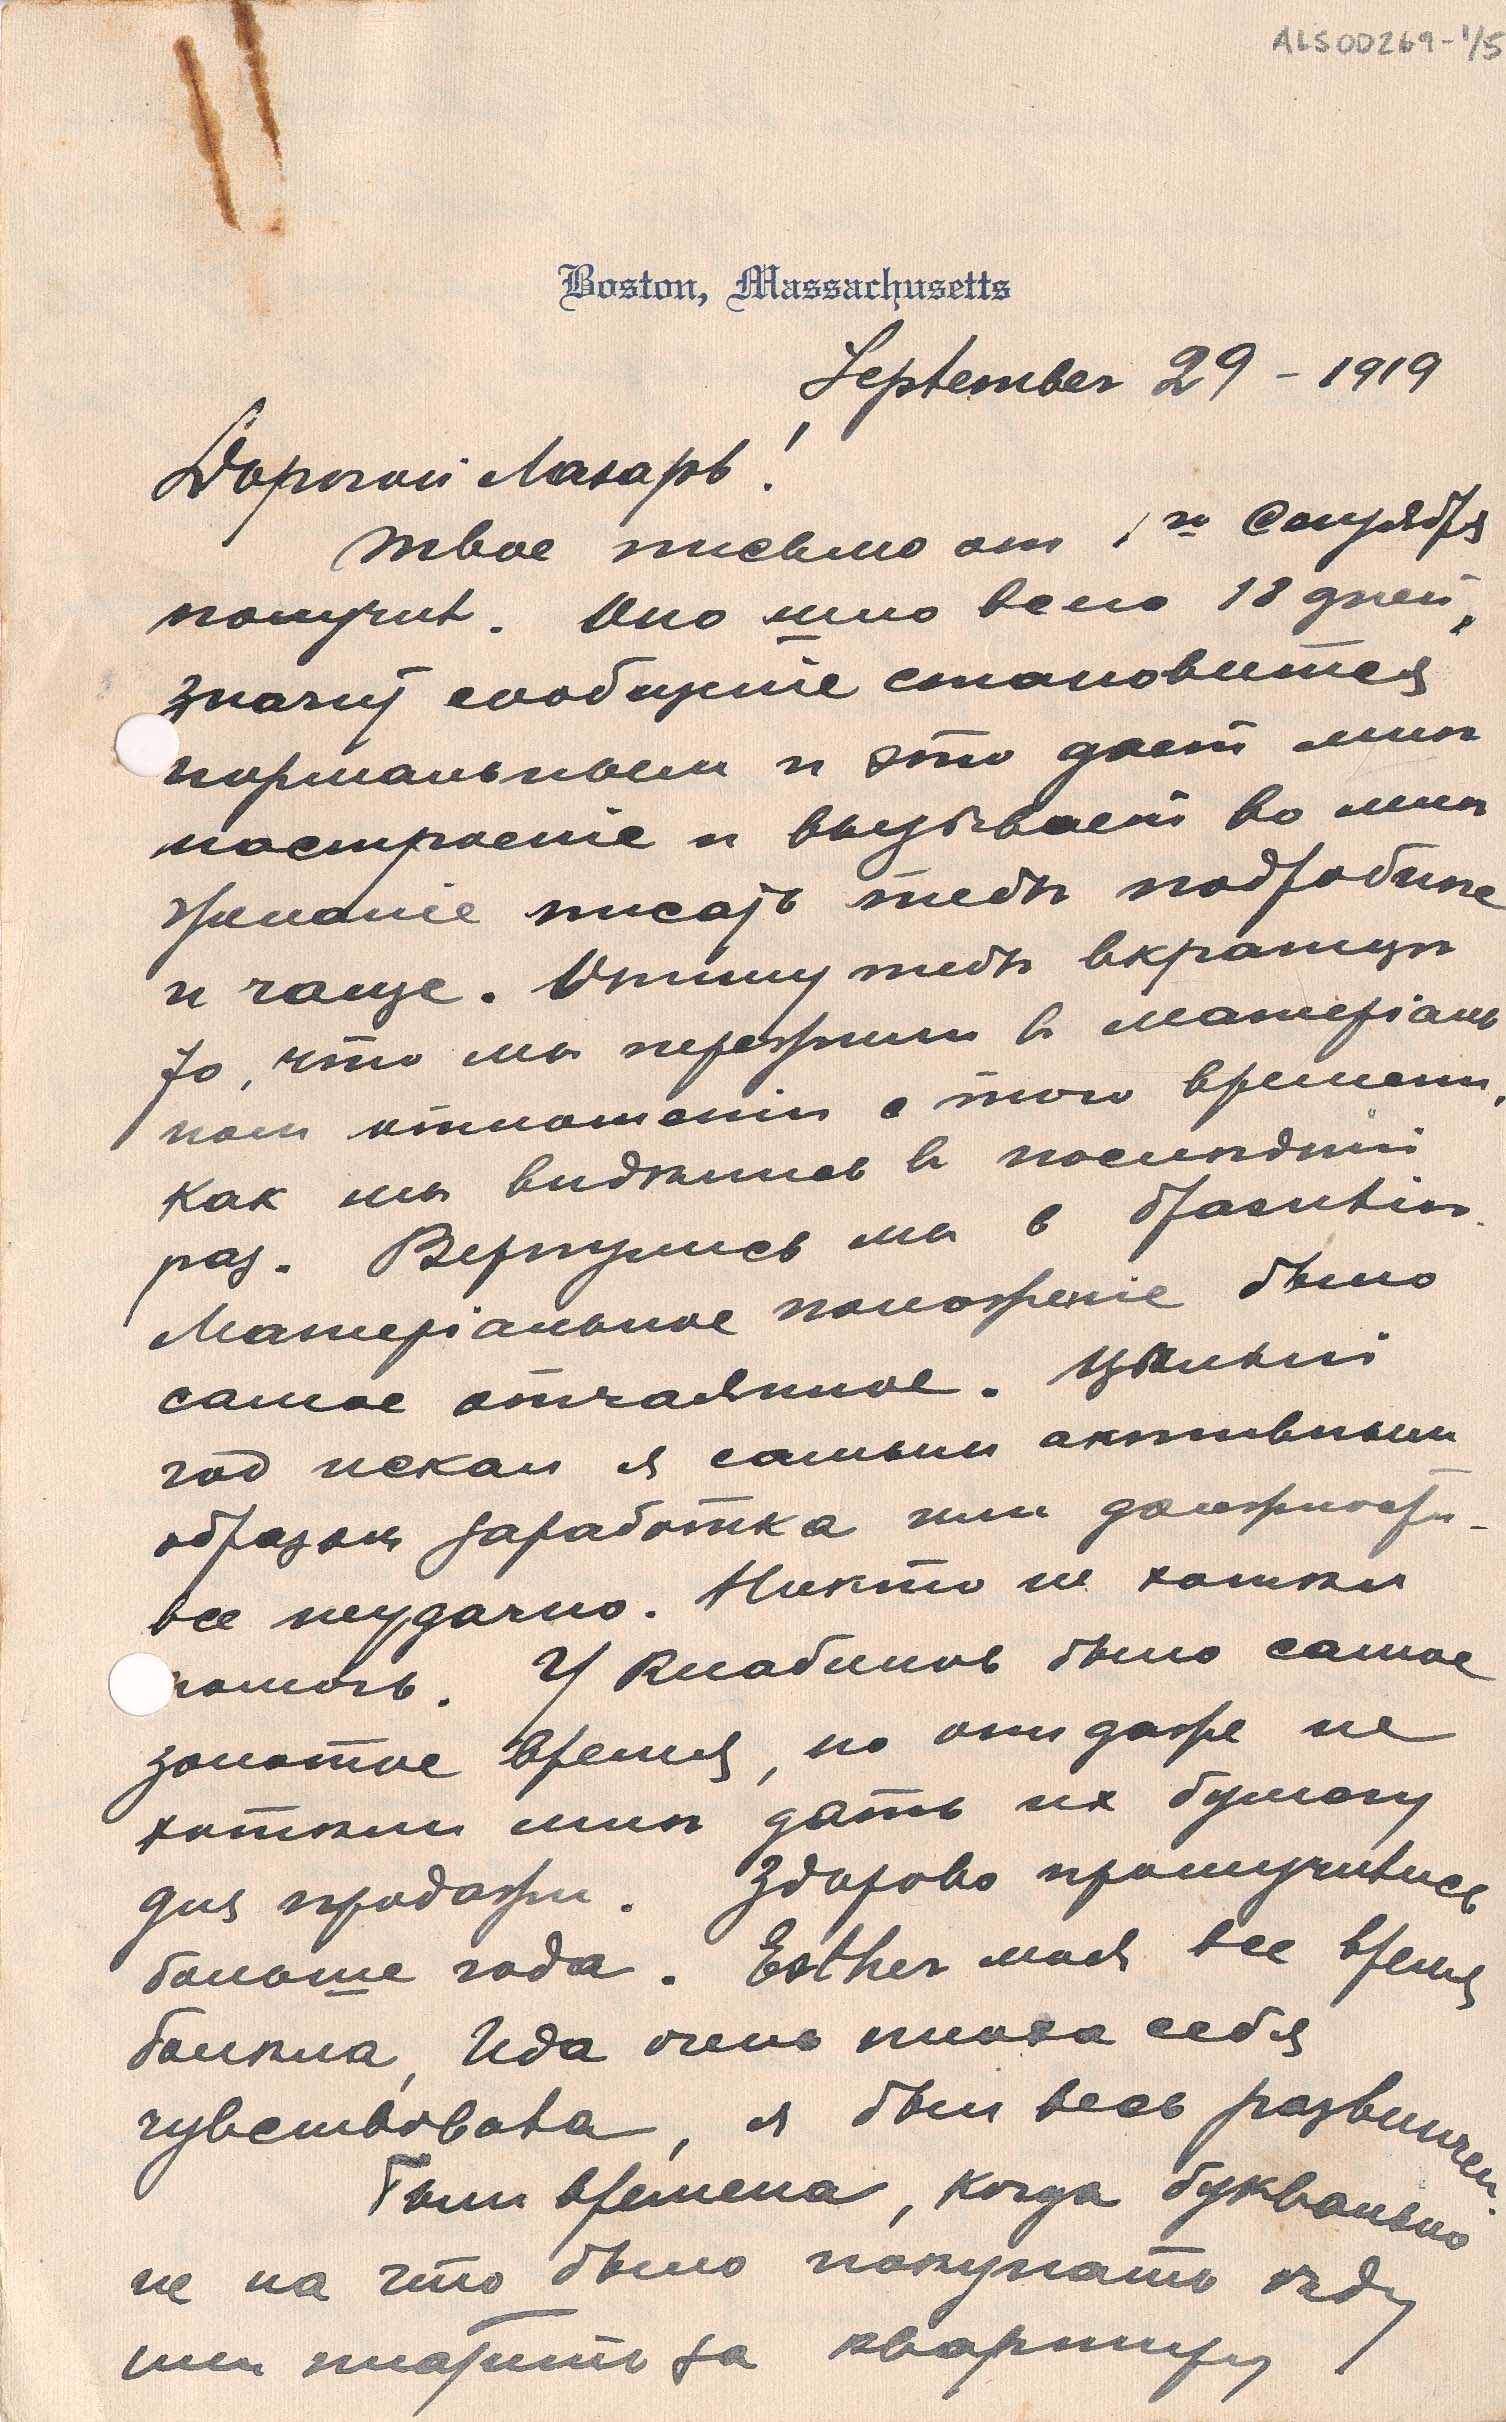 ALS00269-1/5
Boston, Massachusetts
September 29 - 1919
Дорогой Лазарь!
Твое письмо от 1го Сентября
получил. Оно шло всего 18 дней,
значит сообщение становится
нормальным и это дает мнѣ
настроеніе и вызывает во мнѣ
желаніе писать тебѣ подробнѣе
и чаще. Опишу тебѣ вкратцѣ
то, что мы пережили в матеріаль
ном отношеніи с того времени,
как мы видѣлись в послѣдній
раз. Вернулись мы в
Матеріальное положеніе было
самое отчаянное. Цѣлый
год искал я самым активным
образом заработка или должности -
все неудачно. Никто не хотѣл
помочь. У Клабинов было самое
золотое время, но они даже не
хотѣли мнѣ дать их бумагу
для продажи. Здорово промучились
больше года. Esther моя все время
болѣла, Ида очень плохо себя
чувствовала, я был весь развинчен.
Были времена, когда буквально
не на что было покупать ѣду
или платить за квартиру